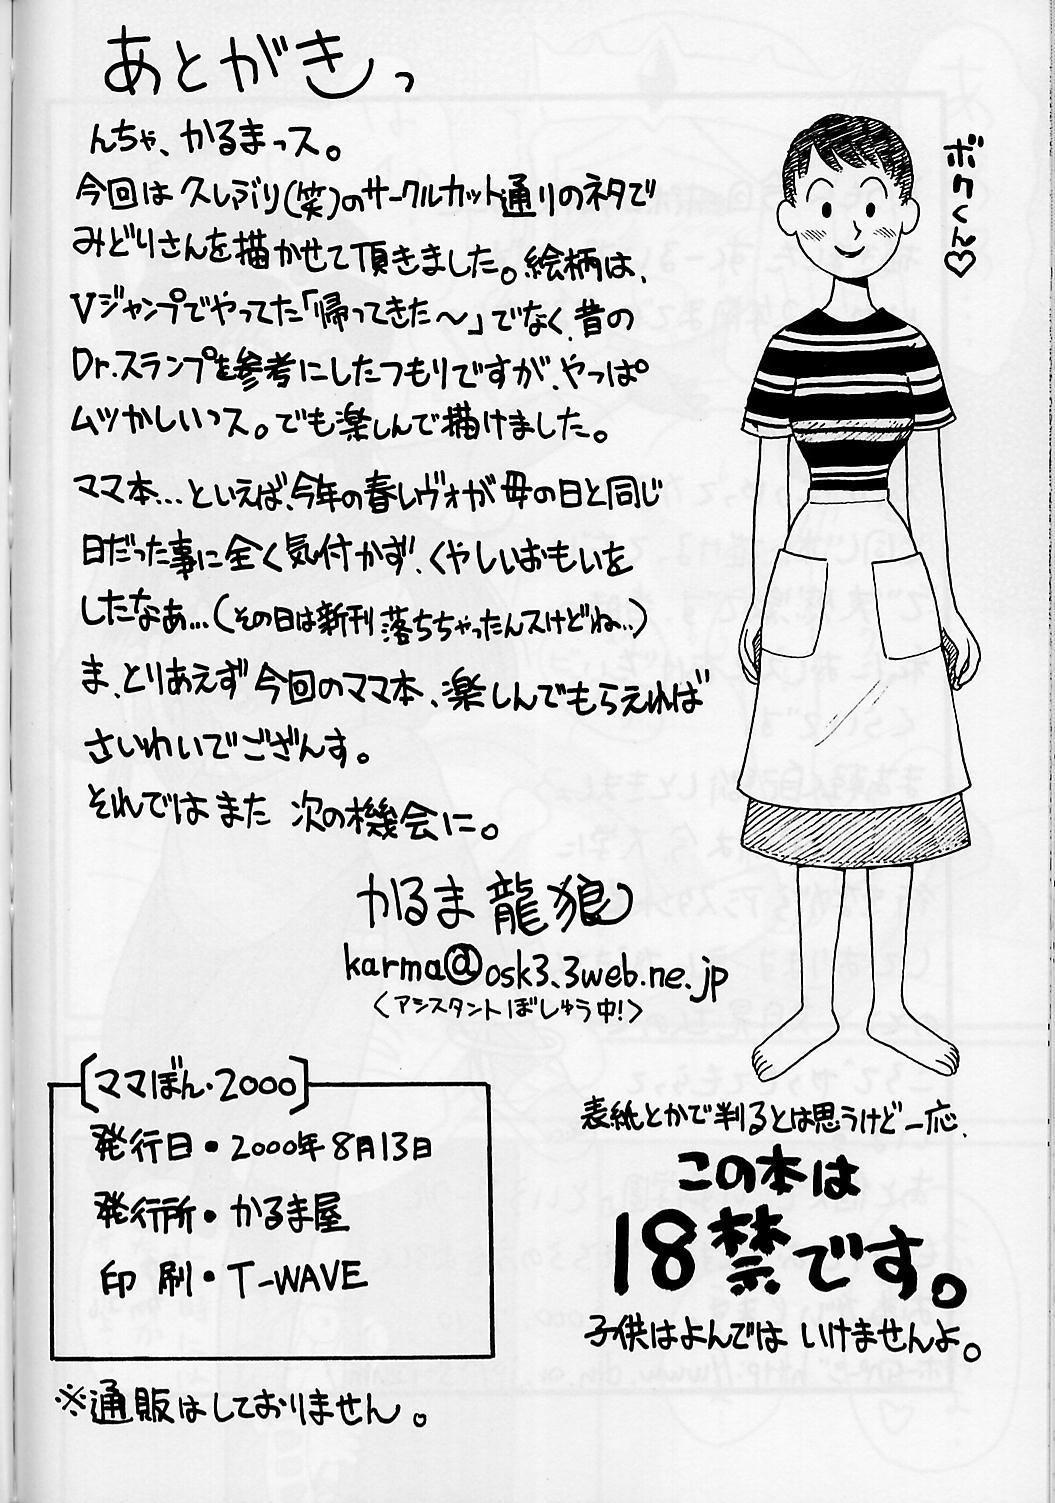 あとがきっ
んちゃ、かるまっス。
今回は久しぶり(笑)のサークルカット通りのネタで
みどりさんを描かせて頂きました。絵柄は、
Vジャンプでやってた「帰ってきた〜」でなく、昔の
Dr.スランプを参考にしたつもりですが、やっぱ
ムツかしいっス。でも楽しんで描けました。
ママ本…といえば、今年の春レヴォが母の日と同じ
日だった事に全く気付かず、くやしいおもいを
したなぁ…(その日は新刊落ちちゃったんスけどね‥)
ま、とりあえず今回のママ本、楽しんでもらえれば
さいわいでござんす。
それではまた次の機会に。
かるま龍狼
karma@osk3.3web.ne.jp
〈アシスタントぼしゅう中!〉
ボクくん♡
[ママぼん・2000]
発行日・2000年8月13日
発行所・かるま屋
印刷・T-WAVE
※通販はしておりません。
表紙とかで判るとは思うけど一応、
この本は
18禁です。
子供はよんではいけませんよ。